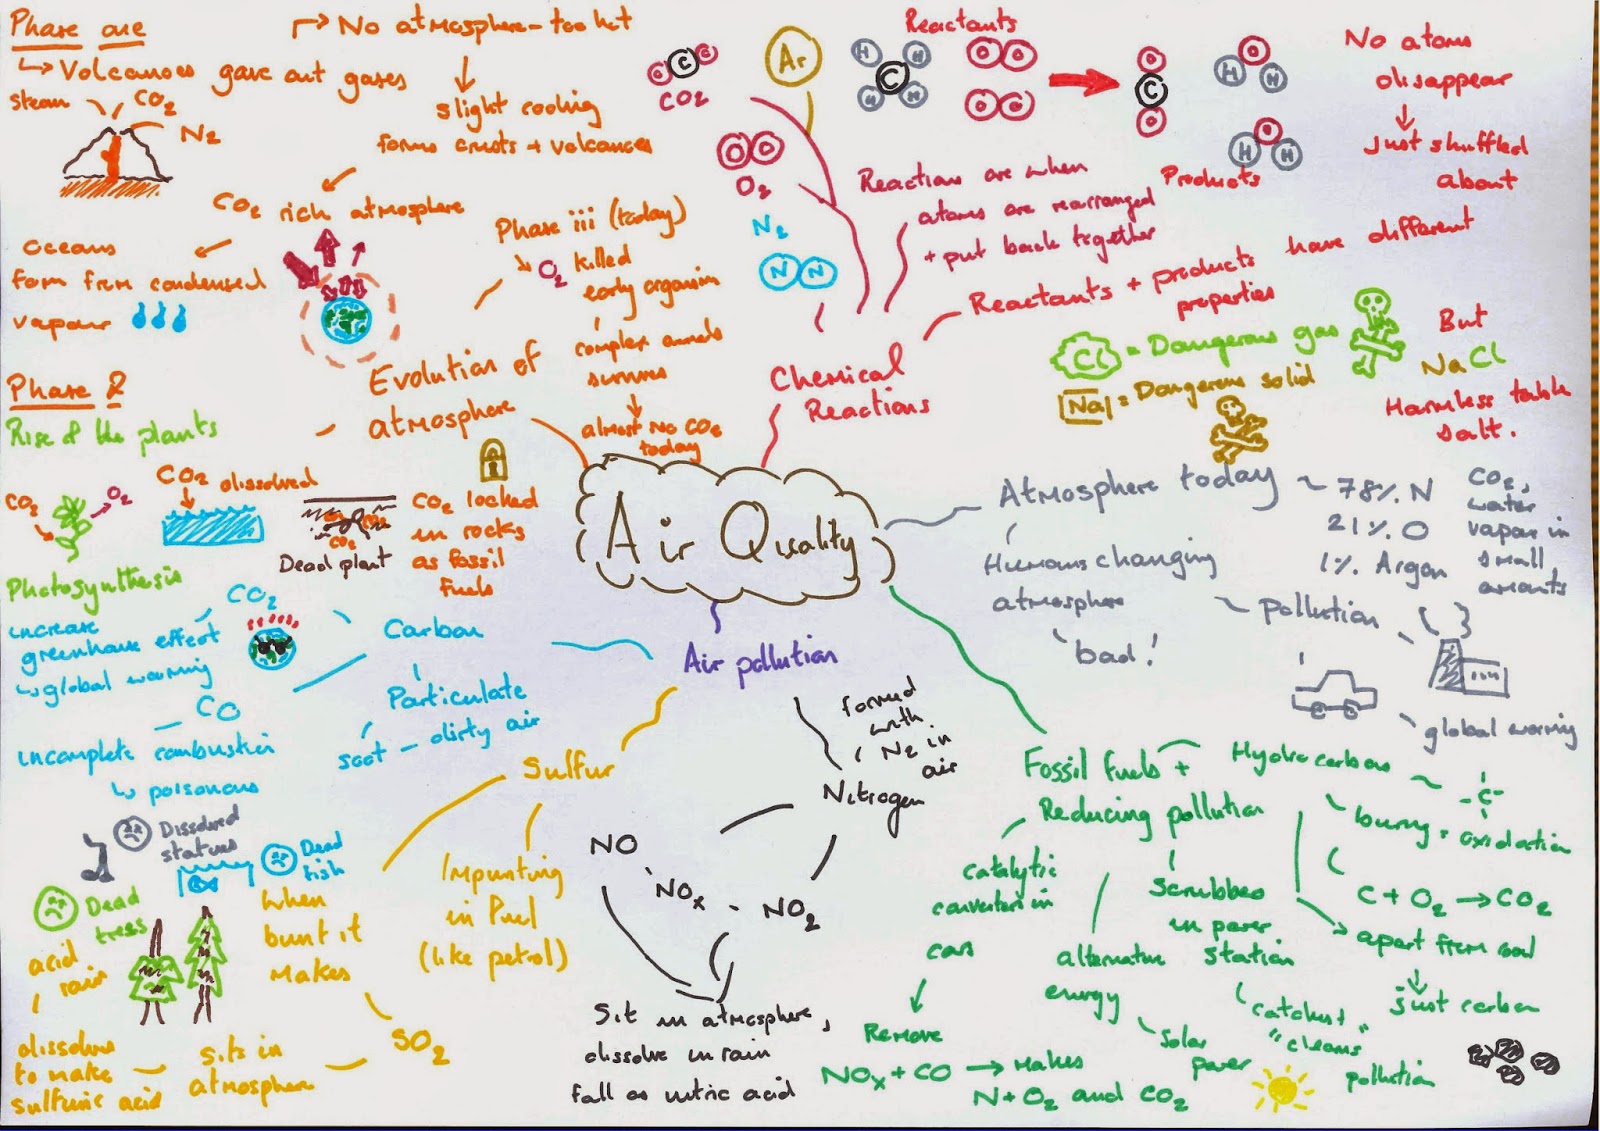 Air Quality
Evolution of
atmosphere
Phase one
Volcanoes gave out gases
steam
CO2
N2
No atmosphere - too hot
slight cooling
forms crusts + volcanoes
CO2 rich atmosphere
Oceans
form from condensed
vapour
Phase 2
Rise of the plants
CO2
O2
Photosynthesis
CO2
dissolved
CO2
Dead plant
CO2 locked
in rocks
as fossil
fuels
Phase iii (today)
O2 killed
early organism
complex animals
survives
almost No CO2
today
Chemical
Reactions
C
CO2
Ar
O O
O2
N2
N N
Reactants
H H
C
H H
O O
O O
O
C
O
O
H H
O
H H
Products
No atoms
disappear
just shuffled
about
Reactions are when
atoms are rearranged
+ put back together
Reactants + products have different
properties
Cl = Dangerous gas
Na = Dangerous solid
But
NaCl
Harmless table
salt.
Atmosphere today
78% N
21% O
1% Argon
CO2,
water
vapour in
small
amounts
Humans changing
atmosphere
'bad!'
pollution
global warming
Air pollution
Carbon
CO2
increase
greenhouse effect
global warming
CO
incomplete combustion
poisonous
Particulate
soot - dirty air
Sulfur
Impunting
in fuel
(like petrol)
when
bunt it
makes
SO2
sits in
atmosphere
dissolves
to make
sulfuric acid
acid
rain
Dead
trees
Dissolved
statues
Dead
fish
Nitrogen
formed
with
N2 in
air
NO
NOx
NO2
Sit in atmosphere,
dissolve in rain
fall as nitric acid
Fossil fuels +
Reducing pollution
Hydrocarbons
-C-
burning = oxidation
C + O2 → CO2
apart from coal
just carbon
catalytic
converters in
cars
Remove
NOx + CO → makes
N + O2 and CO2
alternative
energy
Solar
power
Scrubbers
in power
station
"cleans"
pollution